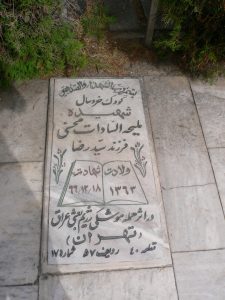 کودک خردسال
شهیده
ملیحه السادات محبتی
فرزند سید رضا
ولادت شهادت
۱۳۶۳ ۶۶،۱۲،۱۸
در اثر حمله موشکی رژیم بعثی عراق
(تهران)
قطعه ۴۰ ردیف ۵۷ شماره ۱۷